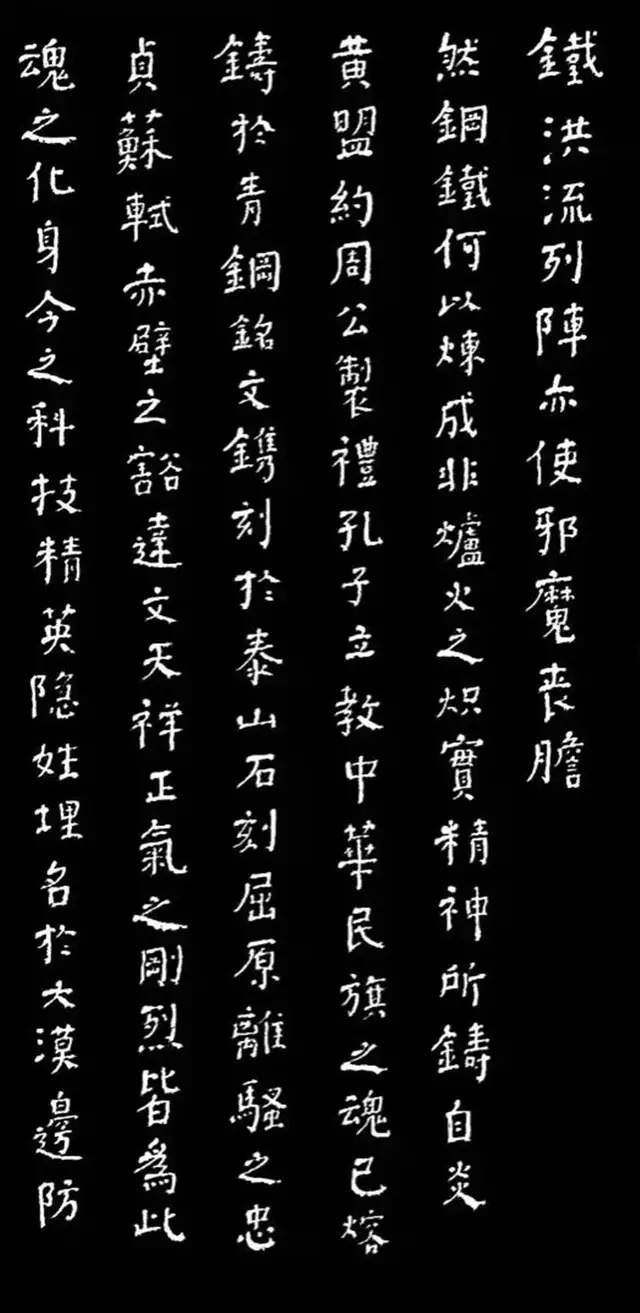 鐵洪流列陣亦使邪魔丧膽
然鋼鐵何以煉成非爐火之炽實精神所鑄自炎
黄盟約周公製禮孔子立教中華民旗之魂已熔
鑄於青鋼銘文鐫刻於泰山石刻屈原離騷之忠
貞蘇軾赤壁之豁達文天祥正氣之剛烈皆爲此
魂之化身今之科技精英隐姓埋名於大漠邊防